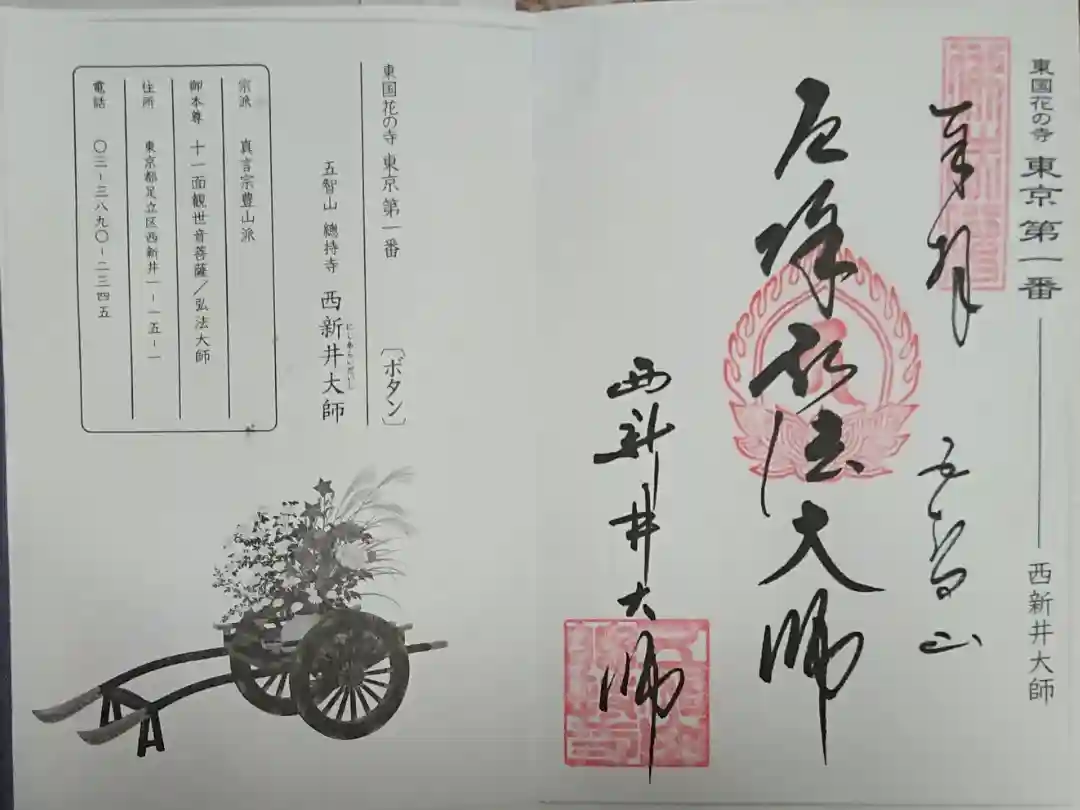 東国花の寺 東京 第一番 西新井大師
奉拝
五智山
厄除弘法大師
西新井大師
東国花の寺 東京 第一番 〔ボタン〕
五智山 總持寺 西新井大師
にしあらいだいし
宗派 真言宗豊山派
御本尊 十一面観世音菩薩/弘法大師
住所 東京都足立区西新井一-一五-一
電話 〇三-三八九〇-二三四五